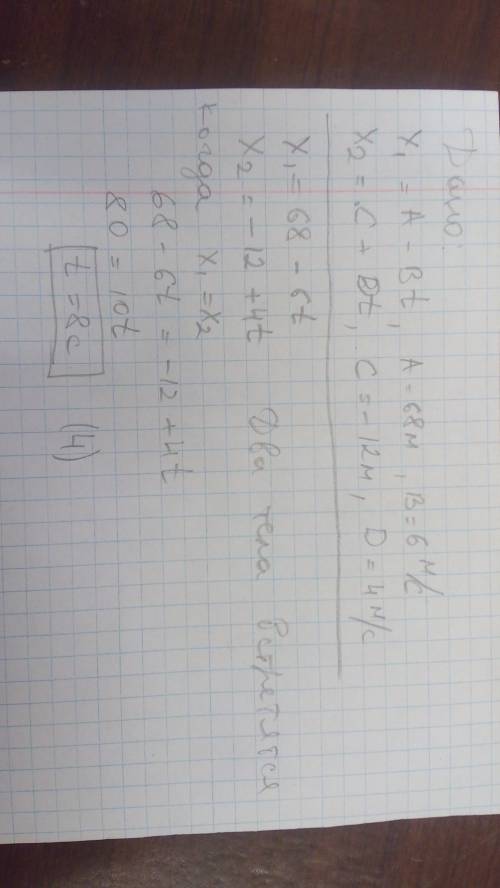 Дано:
x₁ = A - Bt, A = 68м, B = 6 м/с
x₂ = C + Dt, C = -12м, D = 4 м/с
x₁ = 68 - 6t
x₂ = -12 + 4t Два тела встретятся
когда x₁ = x₂
68 - 6t = -12 + 4t
80 = 10t
t = 8с (4)